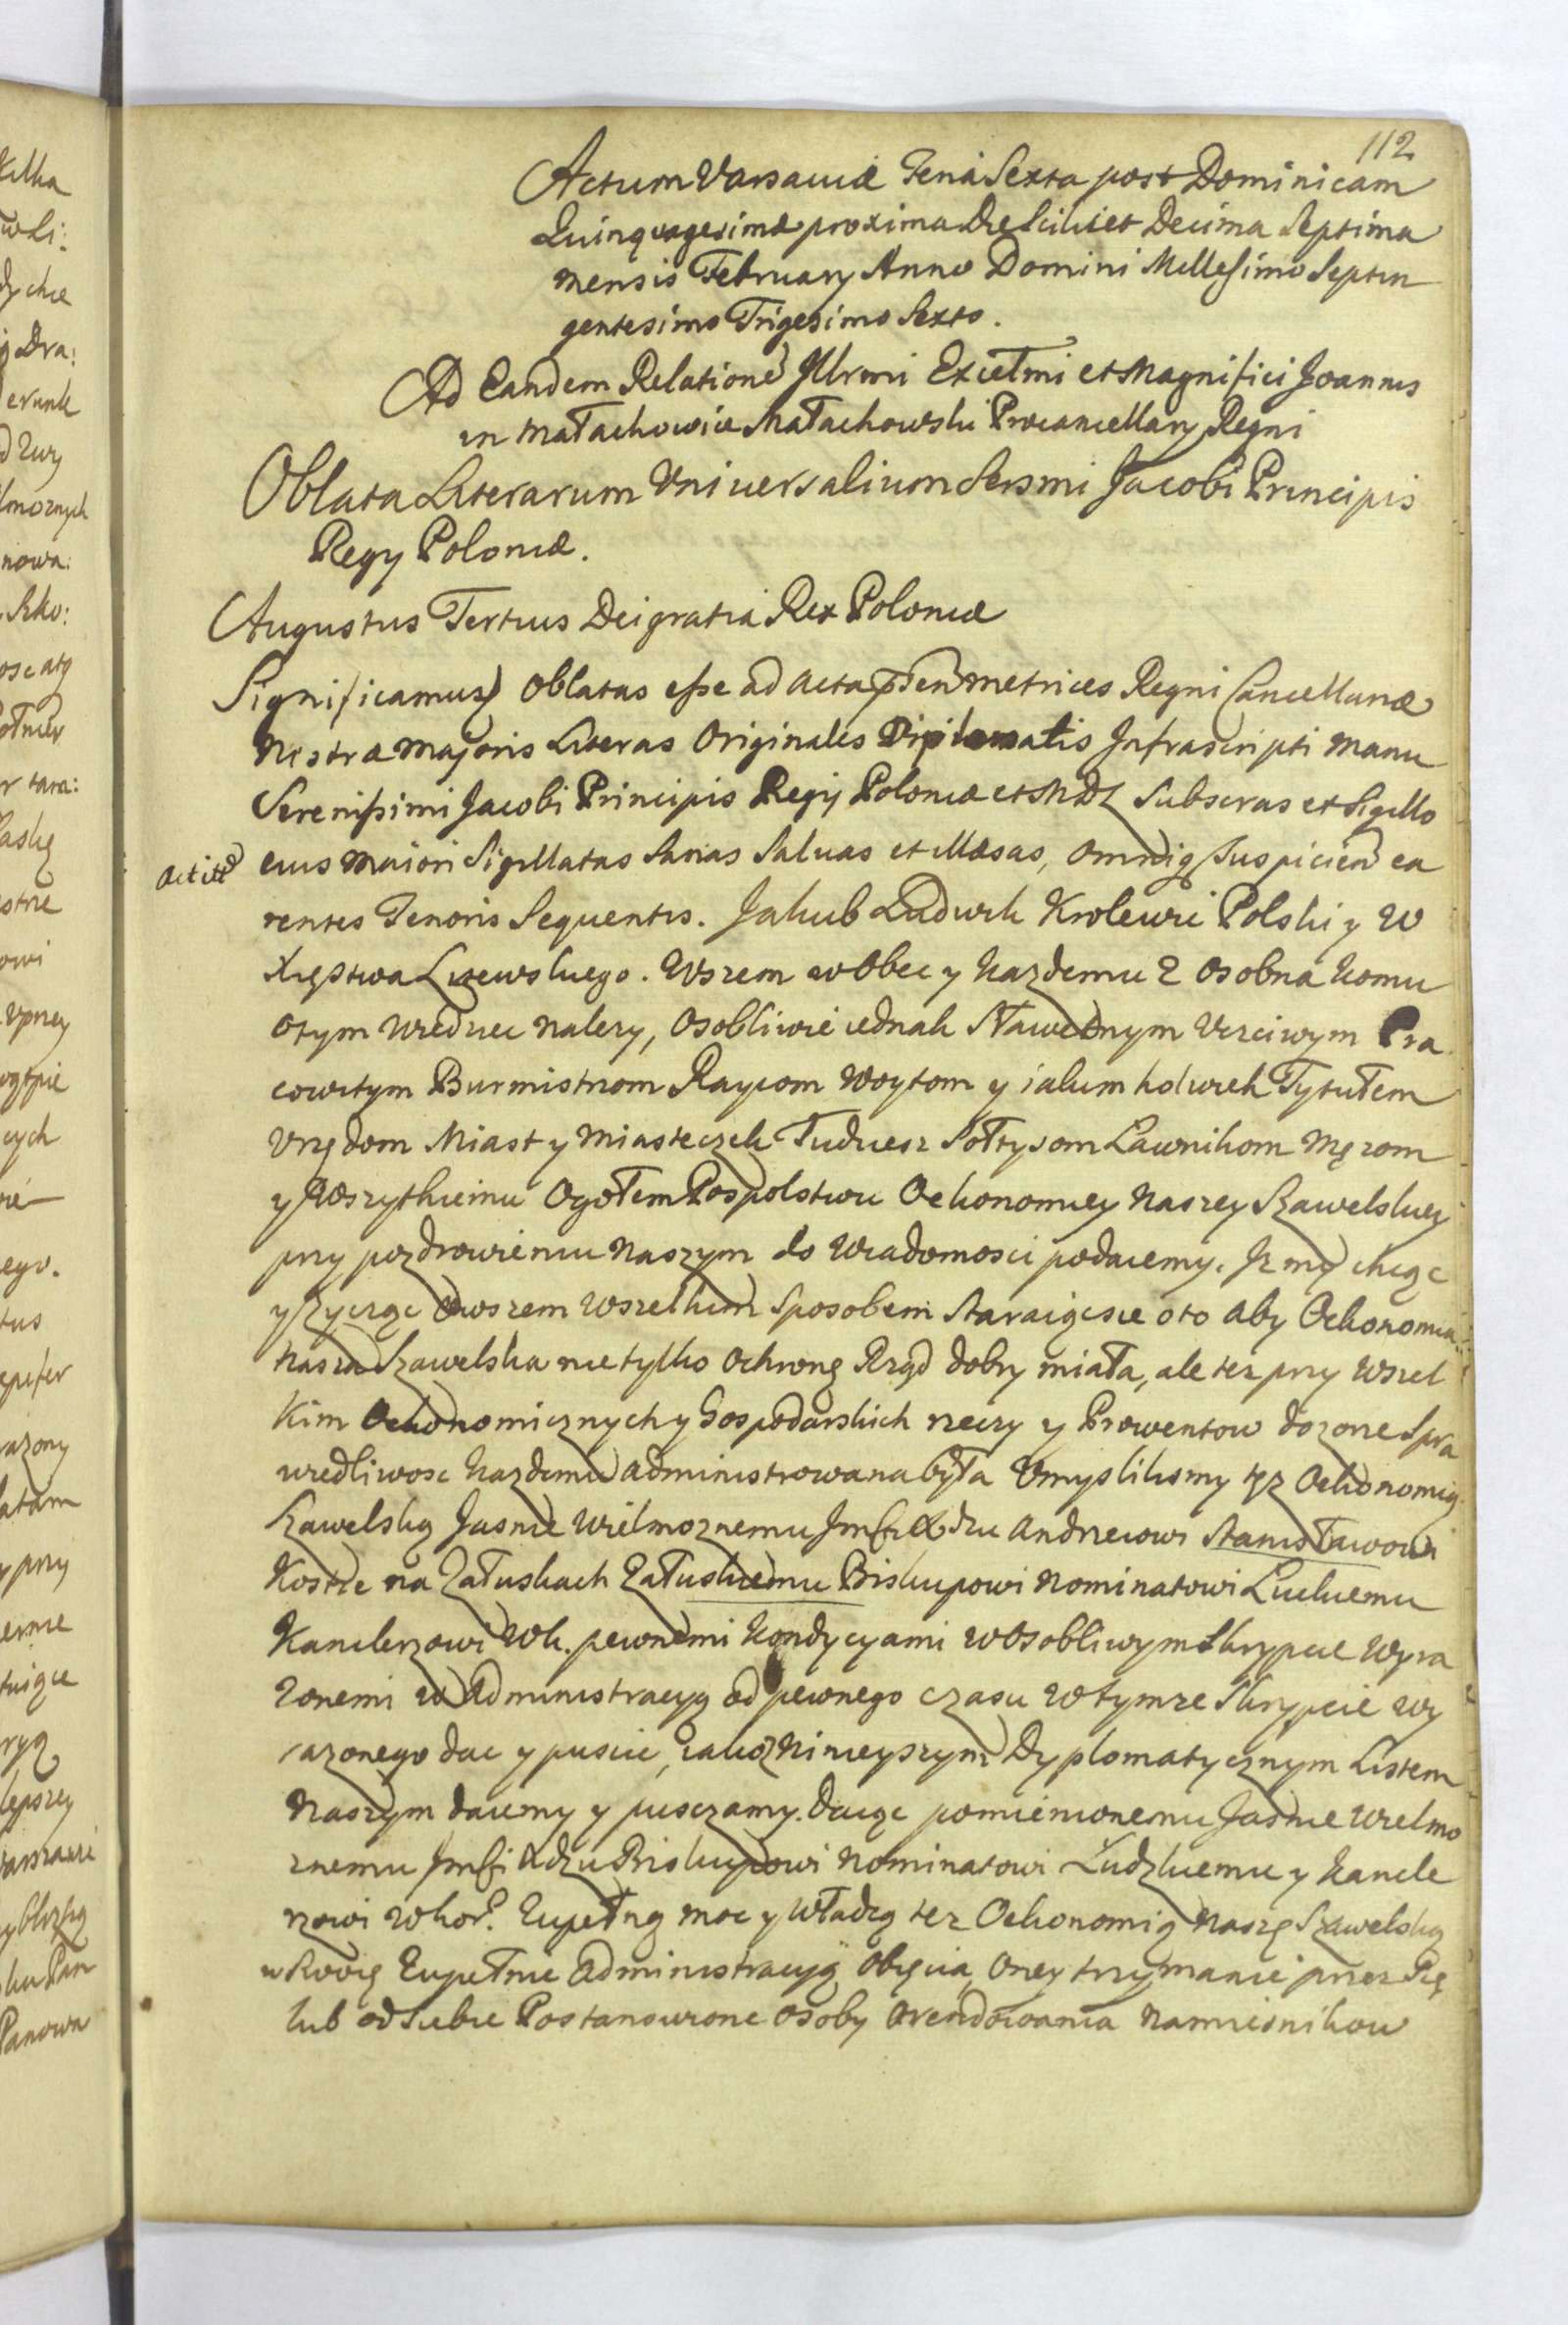 112
Actum Varsauiæ Feriâ Sexta post Dominicam
Quinquagesimæ proxima Die Scilicet Decima Septima
mensis February Anno Domini Millesimo Septin
gentesimo Trigesimo Sexto.
Ad Eandem Relatione Illrmi Excellmi et Magnifici Joannis
in Małachowice Małachowski Procancellary Regni
Oblata Literarum Vniuersalium Sersmi Jacobi Principis
Regy Poloniæ.
Augustus Tertius Dei gratia Rex Poloniæ
Significamus Oblatas esse ad Acta metrices Regni Cancellariæ
Nostræ Majoris Literas Originales Diplomatis Infrascripti Manu
Serenissimi Jacobi Principis Regij Poloniæ et MDL Subscras et Sigillo
eius Maiori Sigillatas Sanas Saluas et Illæsas, Omniq Suspicien ca
rentes Tenoris Sequentis. Jakub Ludwik Krolewic Polski y W
Xięstwa Litewskiego. Wszem wObec y Kazdemu z Osobna Komu
Otym Wiedziec nalezy, Osobliwie iednak Sławetnym Vczciwym Pra
cowitym Burmistrzom Raycom Woytom y iakimkolwiek Tytułem
Vrzędom Miast y Miasteczek Tudziesz Sołtysom Ławnikom Męzom
y Wszytkiemu Ogołem Pospolstwu Oekonomiey Naszey Szawelskiey
przy pozdrowieniu Naszym do Wiadomosci podaiemy. Iz my chcąc
y zycząc Owszem Wszelkim Sposobem Staraiącsie oto aby Oekonomia
Nasza Szawelska nietylko Ochronę Rząd dobry miała, ale tez przy Wszel
Kim Oekonomicznych y Gospodarskich rzeczy y Prowentow dozorze Spra
wiedliwosc Kazdemu Administrowana była Vmyslilismy tęz Oekonomię
Szawelską Jasnie Wielmoznemu Xdzu Andrzeiowi Stanisławowi
Kostce na Załuskach Załuskiemu Biskupowi Nominatowi Łuckiemu
Kanclerzowi WK. pewnemi Kondycyami wOsobliwym Skrypcie Wyra
zonemi w Administracyą od pewnego czasu wtymze Skrypcie Wy
razonego dac y puscic, iakoz Ninieyszym Dyplomatycznym Listem
Naszym daiemy y pusczamy. Daiąc pomienionemu Jasnie Wielmo
znemu Xdzu Biskupowi Nominatowi Łudzkiemu y Kancle
rzowi WKor. Zupełną moc y Władzą tez Oekonomią Naszę Szawelską
w Zupełnie Administracyą Obięcia, Oney trzymanie przez Się
lub od Siebie Postanowione Osoby Arendowania Namiesnikow